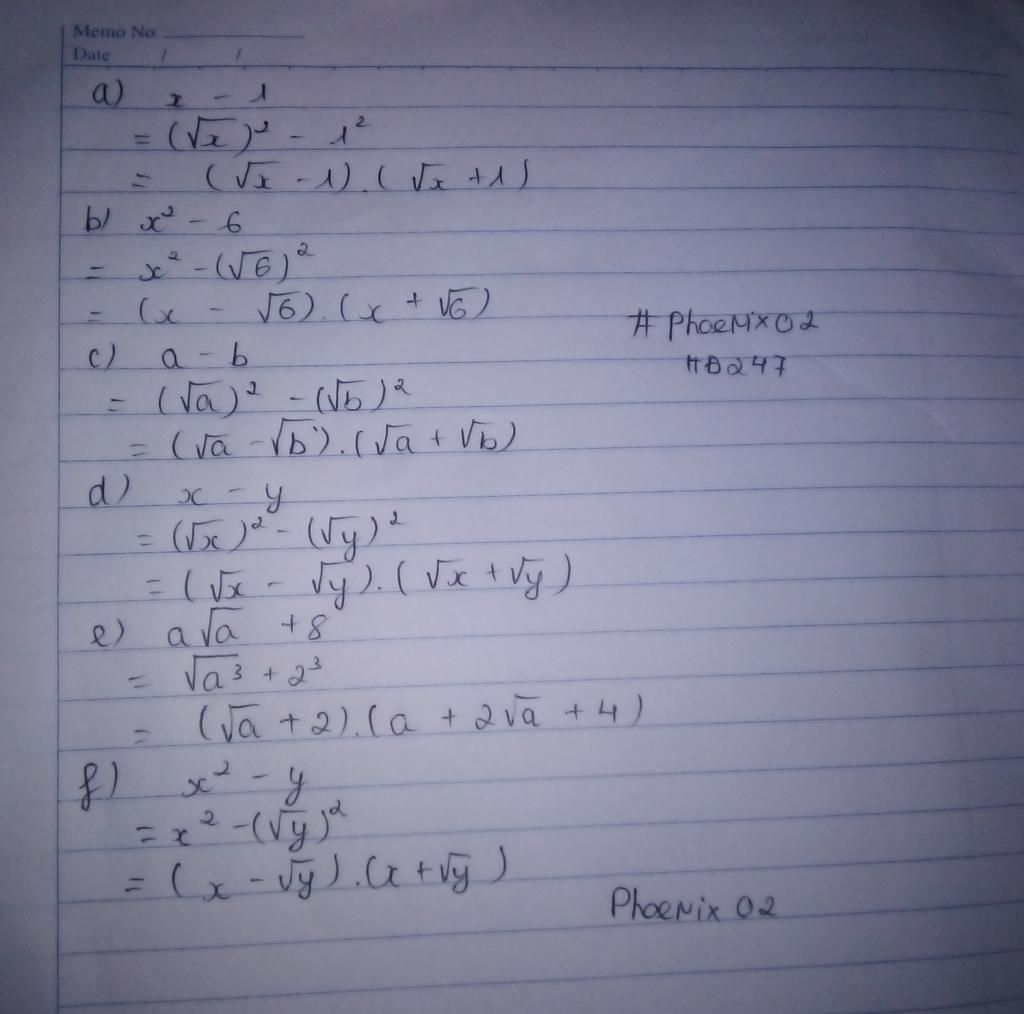 Memo No.
Date / /
a) x - 1
= (√x)² - 1²
= (√x - 1).(√x + 1)
b) x² - 6
= x² - (√6)²
= (x - √6).(x + √6)
# PhoeNix02
HD247
c) a - b
= (√a)² - (√b)²
= (√a - √b).(√a + √b)
d) x - y
= (√x)² - (√y)²
= (√x - √y).(√x + √y)
e) a√a + 8
= √a³ + 2³
= (√a + 2).(a + 2√a + 4)
f) x² - y
= x² - (√y)²
= (x - √y).(x + √y)
PhoeNix 02